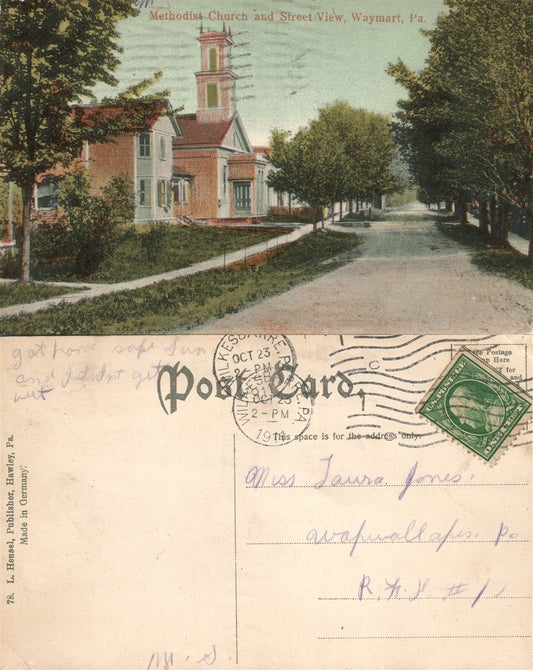 Methodist Church and Street View, Waymart, Pa.
got home safe Sun
and I didnt get
wet
Post Card.
WILKES-BARRE, PA.
OCT 23
2-PM
OCT 23
2-PM
191
Postage
Here
This space is for the address only.
Miss Laura Jones.
Wapwallopen Pa
R.F.D #1
M. S
78. L. Hensel, Publisher, Hawley, Pa.
Made in Germany.